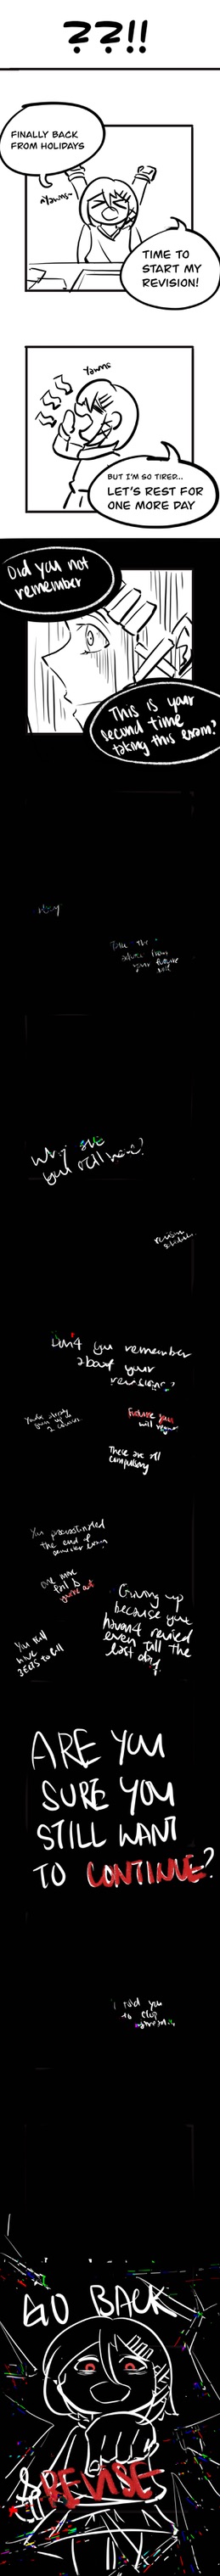 ??!!
FINALLY BACK
FROM HOLIDAYS
~Yawns~
TIME TO
START MY
REVISION!
Yawns
BUT I'M SO TIRED...
LET'S REST FOR
ONE MORE DAY
Did you not
remember
This is your
second time
taking this exam?
Why are
you still here?
Don't you remember
about your
revisions?
Future you
will regret
These are all
compulsory
You procrastinated
the end of
one more
fail &
you're out
Giving up
because you
haven't revised
even till the
last day
You still
have
ARE YOU
SURE YOU
STILL WANT
TO CONTINUE?
I told you
to stop
GO BACK
& REVISE